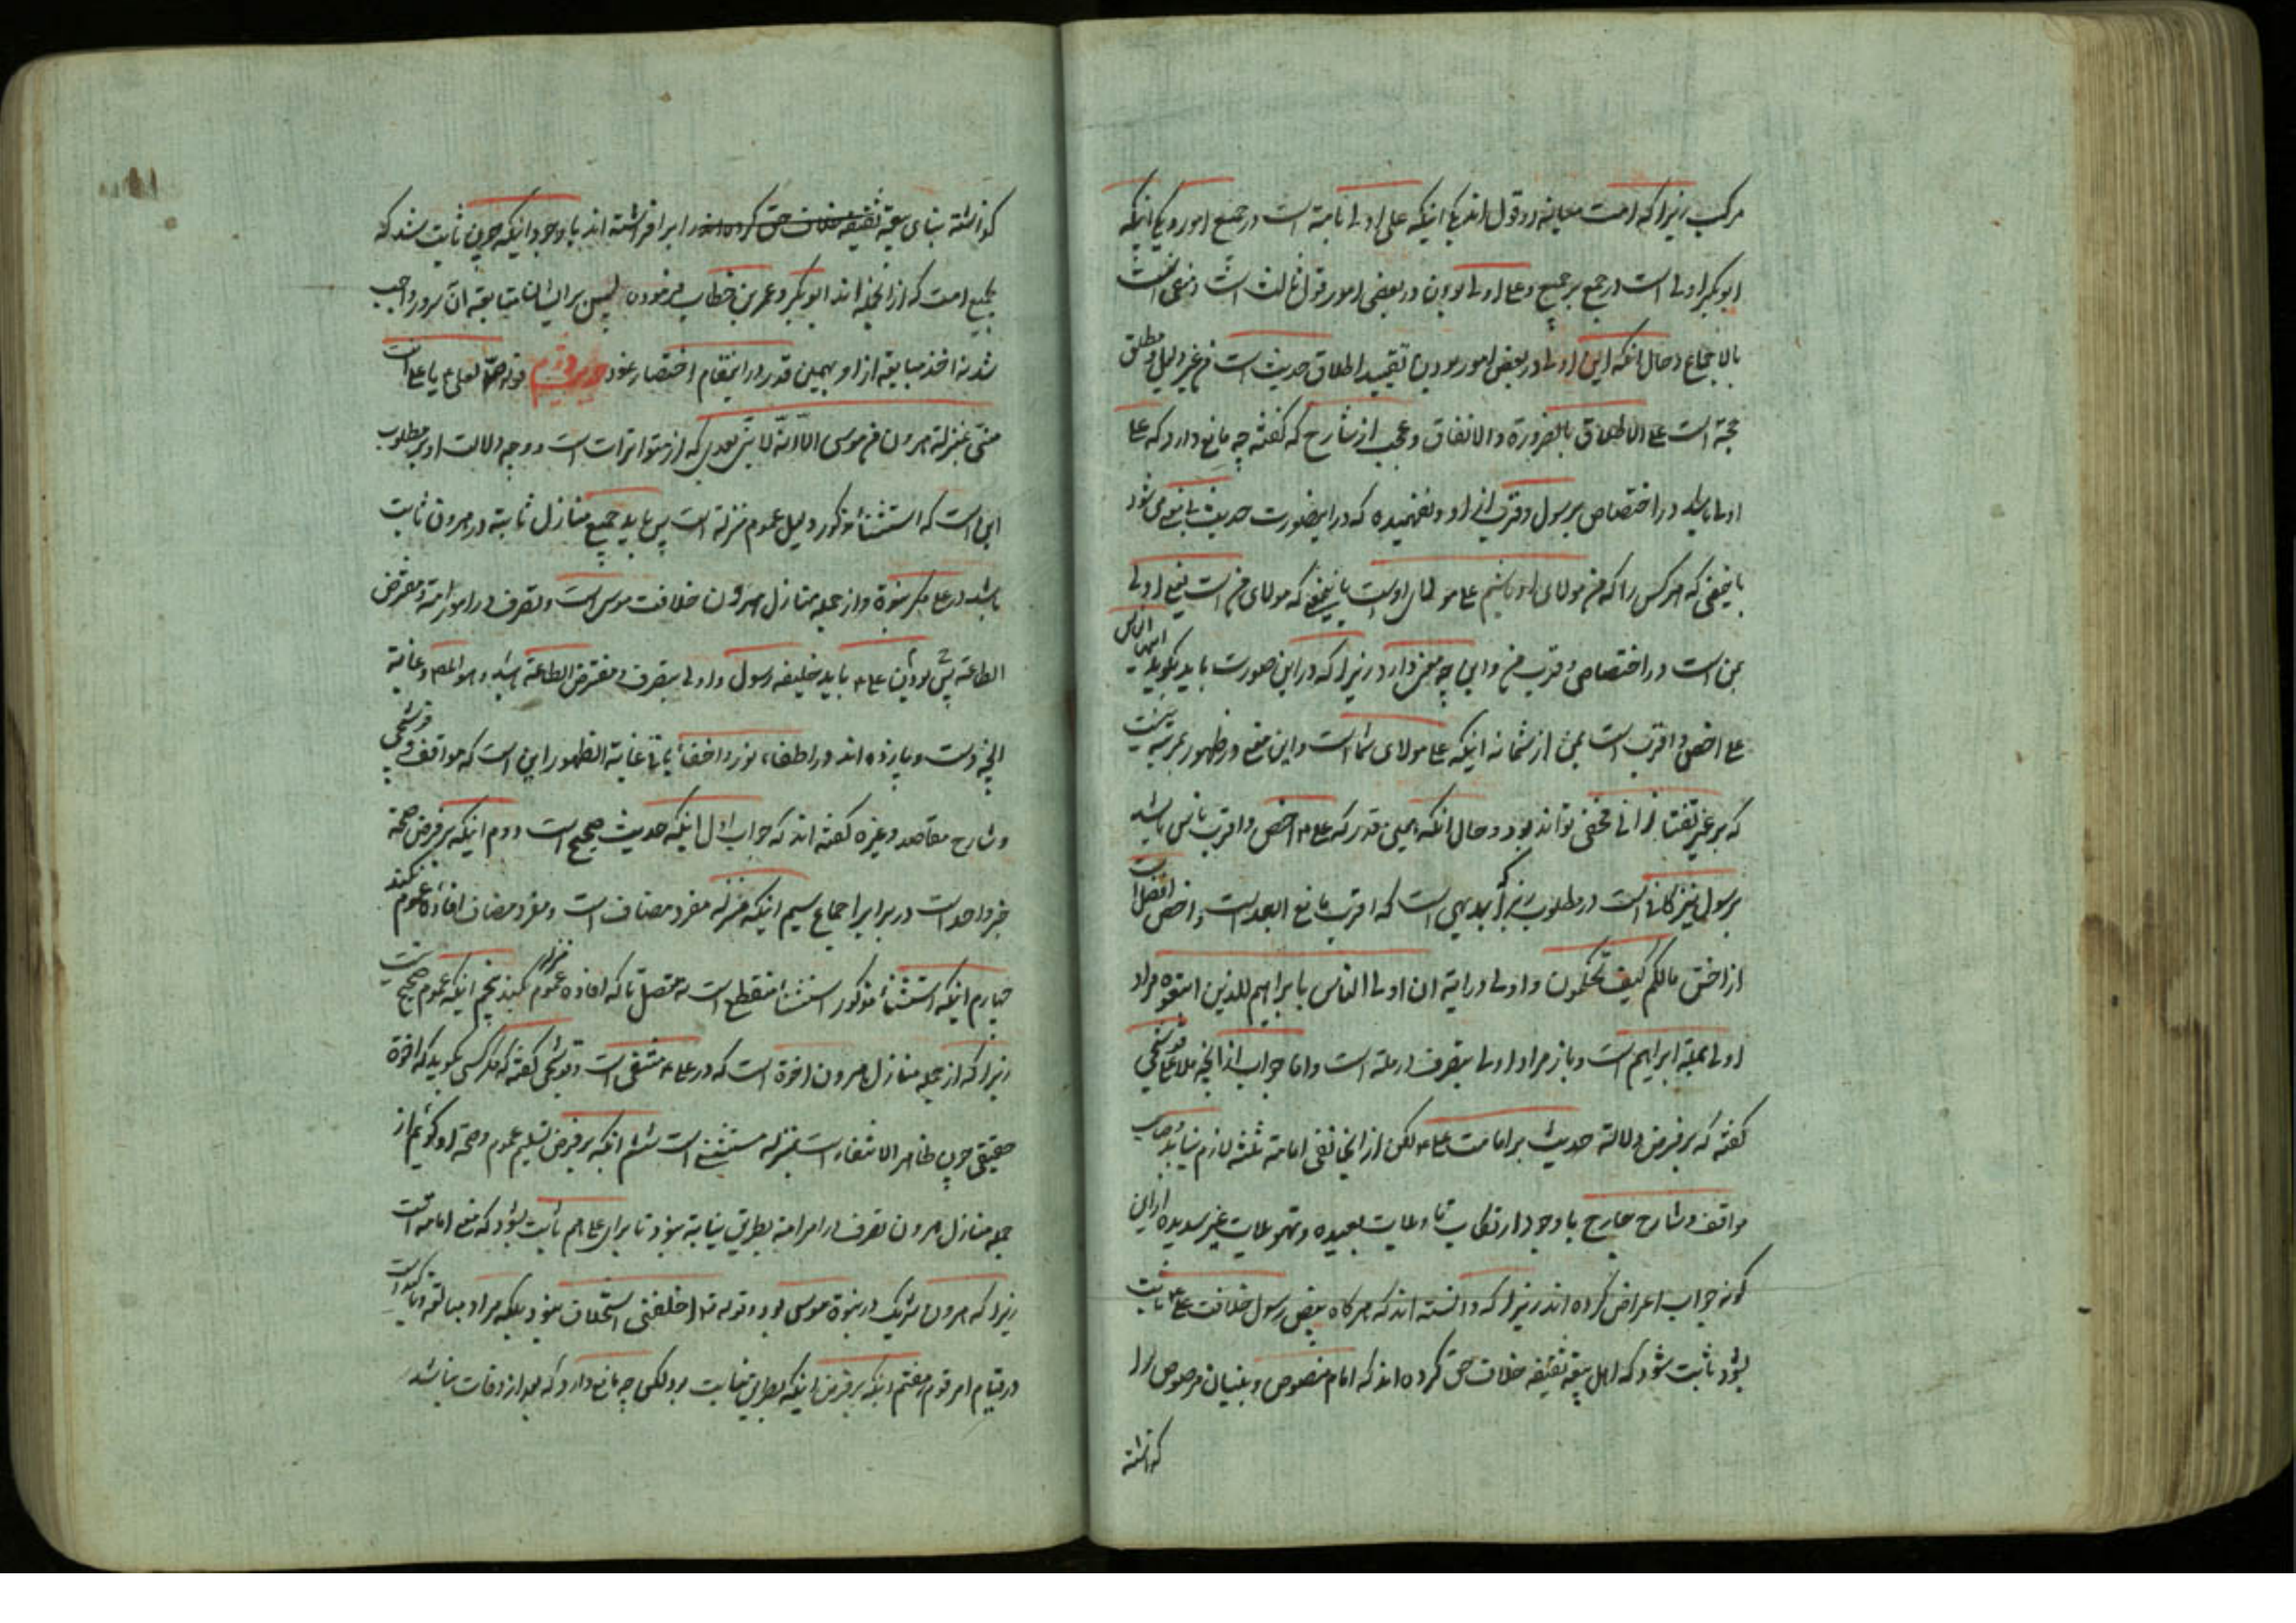 مرکب زیرا که امت میانه دو قول اند یکی اینکه علی اولی تامه است در جمیع امور و یکی اینکه
ابوبکر اولی است در جمیع بر جمیع و علی اولی بودن در بعضی امور قول ثالث است و منفی است
بالاجماع و حال آنکه این اولی در بعض امور بودن تقیید اطلاق حدیث است من غیر دلیل و مطلق
حجة است علی الاطلاق بالضرورة و الاتفاق و عجب از شارح که گفته چه مانع دارد که علی
اولی باشد در اختصاص برسول و قرب از او و نفهمیده که در اینصورت حدیث باینمعنی میشود
که هر کس را که من مولای او باشم علی مولای اوست باینمعنی که مولای من است یعنی اولی
بمن است در اختصاص و قرب من و این چه معنی دارد زیرا که در این صورت باید بگوید ایها الناس
علی اخص و اقرب است بمن از شما نه اینکه علی مولای شما است و این معنی در ظهور بمرتبه نیست
که بر غیر تفتازانی مخفی تواند بود و حال آنکه همین قدر که علی اخص و اقرب ناس باشد
برسول نیز کافی است در مطلوب زیرا که بدیهی است که اقرب مانع ابعد است و اخص افضل است
از اخس مالکم کیف تحکمون و اولی در آیة ان اولی الناس بابراهیم للذین اتبعوه مراد
اولی بملة ابراهیم است و باز مراد اولی بتصرف در ملة است و اما جواب از آنچه ملا علی قوشجی
گفته که بر فرض دلالة حدیث بر امامت علی لکن از اینجا نفی امامة ثلثه لازم نیاید و صاحب
مواقف و شارح با وجود ارتکاب تاویلات بعیده و تمحلات غیر سدیده از این
گونه جواب اعراض کرده اند زیرا که دانسته اند که هر گاه بنص رسول خلافت علی ثابت
شود ثابت شود که اهل بیعة ثقیفه خلاف حق کرده اند که امام منصوص و بنیان مرصوص را
گذاشته
گذاشته بنای بیعة ثقیفه را برافراشته اند با وجود اینکه چون ثابت شد که
بجمیع امت که از آنجمله اند ابوبکر و عمر بن خطاب فرموده پس بر ایشان متابعة آن سرور واجب
شد نه اخذ مبایعة از او بهمین قدر در اینمقام اختصار نمود دوم قوله لعلی یا علی انت
منی بمنزلة هرون من موسی الا انه لا نبی بعدی که از متواترات است و وجه دلالت او بر مطلوب
این است که استثناء مذکور دلیل عموم منزلة است پس باید جمیع منازل ثابتة در هرون ثابت
باشد در علی مگر نبوة و از جمله منازل هرون خلافت موسی است و تصرف در امور امة و مفترض
الطاعة بودن پس علی باید خلیفه رسول و اولی بتصرف و مفترض الطاعة باشد و هو المدعی و غایة
آنچه دست و پا زده اند در اطفاء نور و اخفاء غایة الظهور این است که مواقف و قوشجی
و شارح مقاصد و غیره گفته اند که جواب اول اینکه حدیث صحیح است دوم اینکه بر فرض صحة
خبر واحد است در برابر اجماع سیم اینکه منزله مفرد مضاف است و مفرد مضاف افاده عموم نکند
چهارم اینکه استثناء مذکور استثناء منقطع است نه متصل تا که افاده عموم منزله بکند پنجم اینکه عموم صحیح نیست
زیرا که از جمله منازل هرون اخوة است که در علی منتفی است و قوشجی گفته که مگر کسی بگوید که اخوة
حقیقی چون ظاهر الانتفاء است بمنزله مستثنی است ششم اینکه بر فرض تسلیم عموم و صحة او گوئیم از
جمله منازل هرون تصرف در امر امة بطریق نیابة نبود تا برای علی هم ثابت شود که معنی امامة است
زیرا که هرون شریک در نبوة موسی بود و قوله تعالی اخلفنی استخلاف نبود بلکه مراد مبالغه و تاکید است
در قیام امر قوم هفتم اینکه بر فرض اینکه بطریق نیابت بود لکن چه مانع دارد که بعد از وفات نباشد